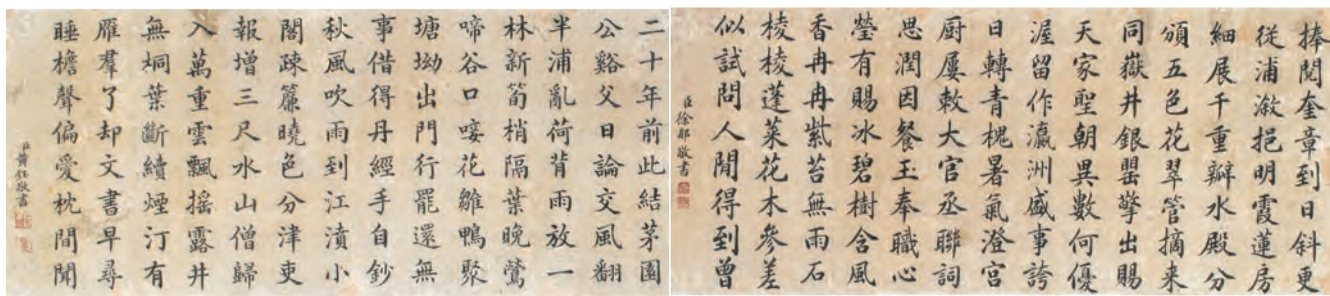 捧閱奎章到日斜更
從浦漵挹明霞蓮房
細展千重瓣水殿分
頒五色花翠管摘来
同嶽井銀罌擎出賜
天家聖朝異數何優
渥留作瀛洲盛事誇
日轉青槐暑氣澄宫
厨屢敕大官丞聯詞
思潤因餐玉奉職心
瑩有賜冰碧樹含風
香冉冉紫苔無雨石
棱棱蓬莱花木參差
似試問人間得到曾
臣徐郙敬書
二十年前此結茅園
公谿父日論交風翻
半浦亂荷背雨放一
林新筍梢隔葉晚鶯
啼谷口唼花雛鴨聚
塘坳出門行罷還無
事借得丹經手自鈔
秋風吹雨到江濆小
閣踈簾曉色分津吏
報增三尺水山僧歸
入萬重雲飄摇露井
無桐葉斷續煙汀有
雁羣了却文書早尋
睡檐聲偏愛枕間聞
臣黄鈺敬書